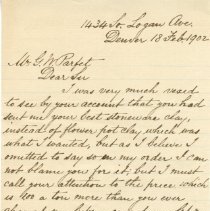 1434 So. Logan Ave.
Denver 13 Feb. 1902
Mr. G. W. Parfet
Dear Sir
I was very much vexed
to see by your account that you had
sent me your best stoneware clay,
instead of flower pot clay, which was
what I wanted, but as I believe I
omitted to say so in my order I can
not blame you for it, but I must
call your attention to the price which
is 50¢ a ton more than you ever